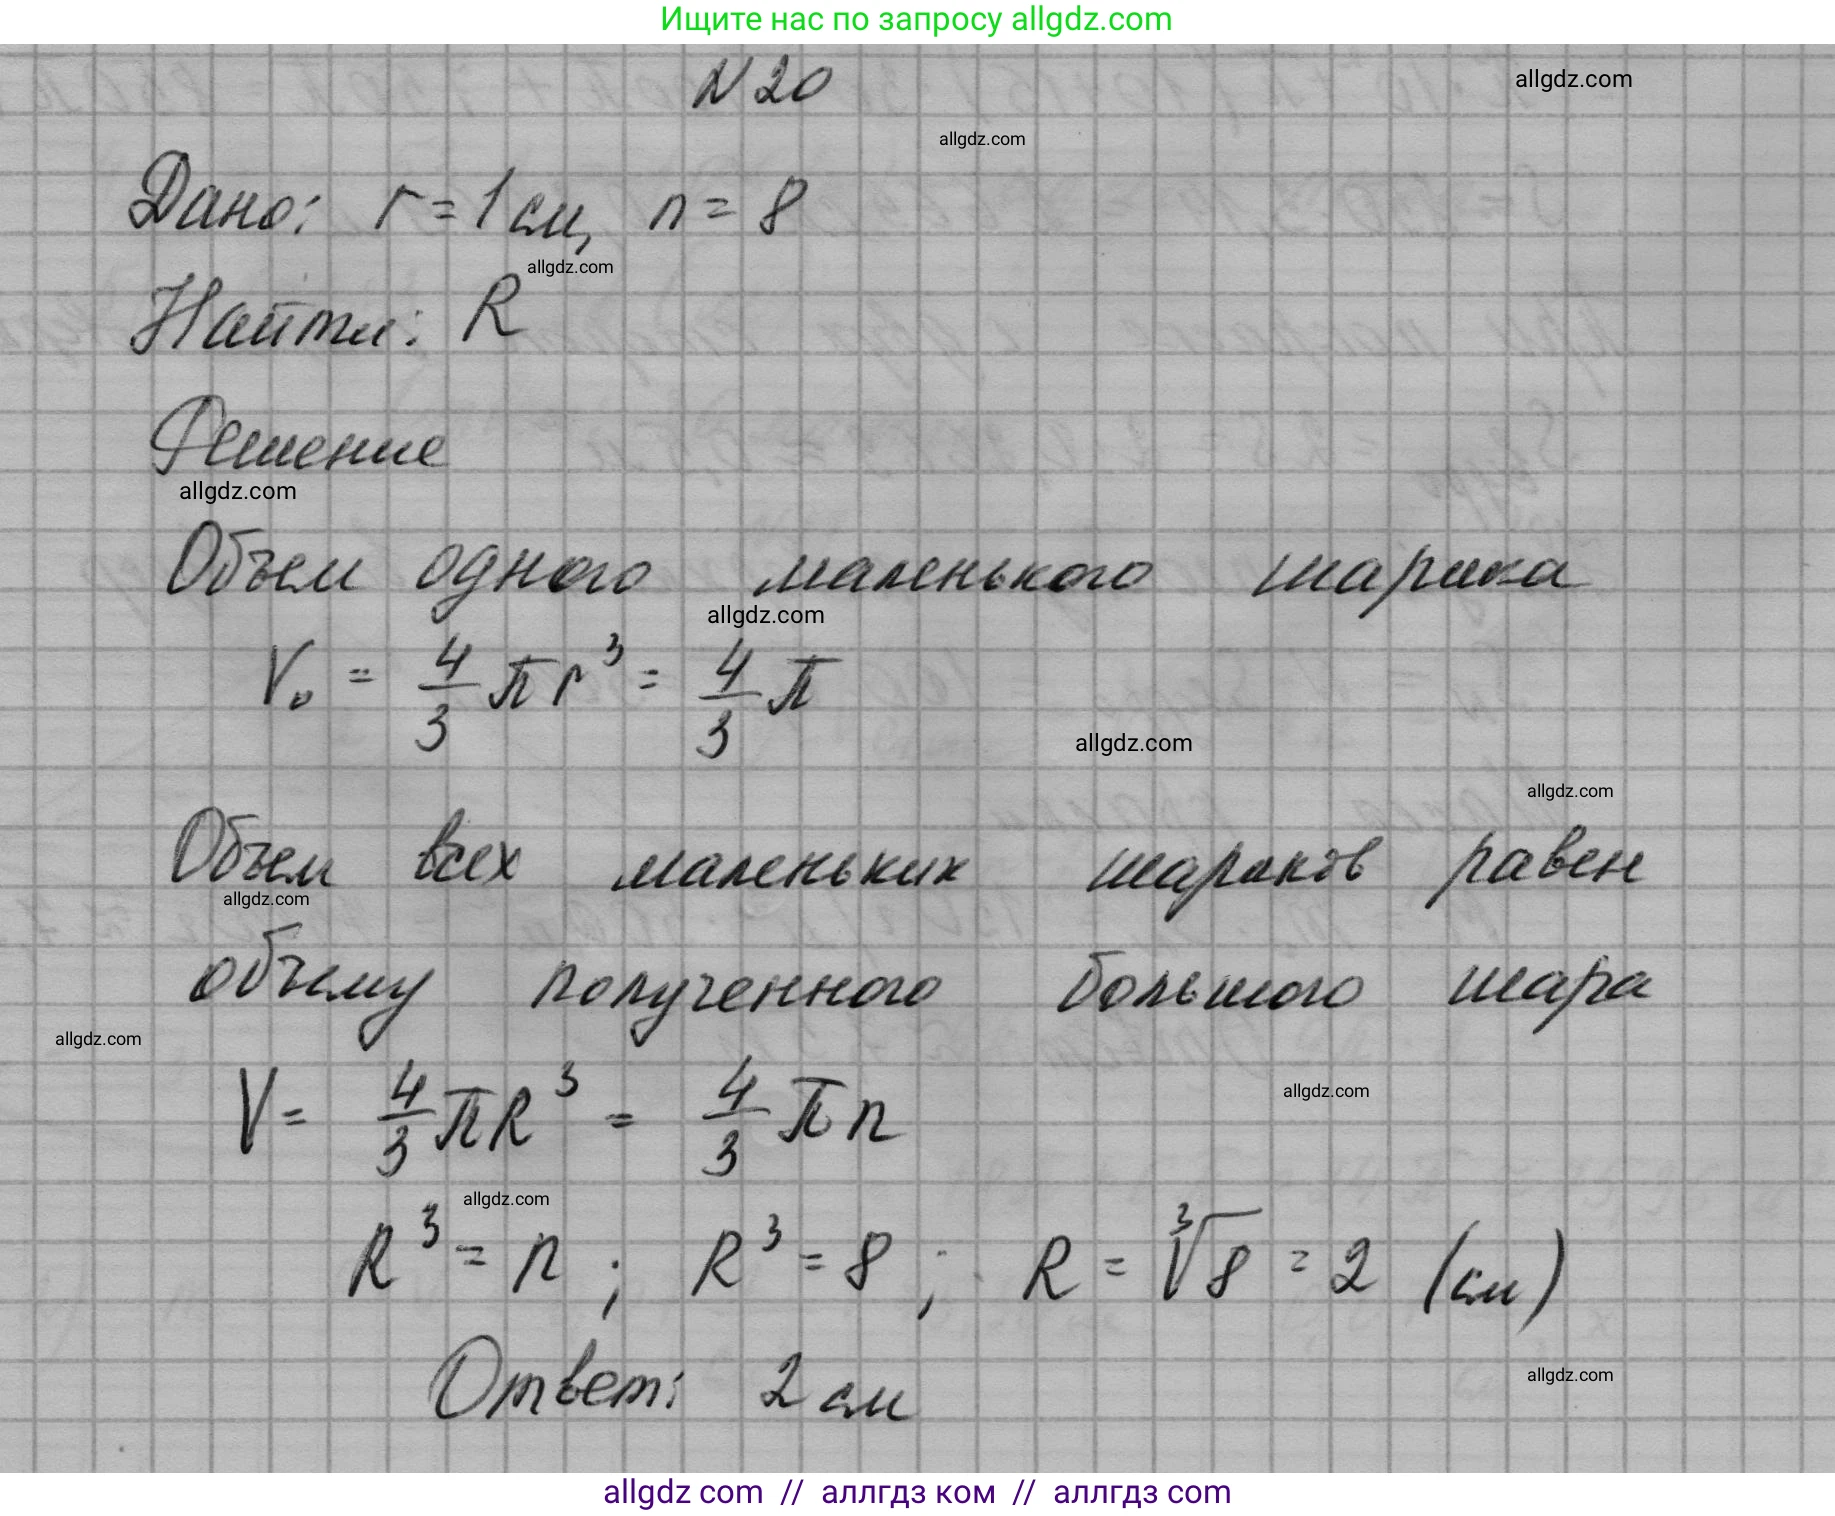 Ищите нас по запросу allgdz.com
N 20
allgdz.com
allgdz.com
Дано: r = 1 см, n = 8
allgdz.com
Найти: R
Решение
allgdz.com
Объем одного маленького шарика
allgdz.com
V₀ = 4/3 πr³ = 4/3 π
allgdz.com
allgdz.com
Объем всех маленьких шариков равен
allgdz.com
объему полученного большого шара
allgdz.com
V = 4/3 πR³ = 4/3 πn
allgdz.com
allgdz.com
R³ = n ; R³ = 8 ; R = ∛8 = 2 (см)
Ответ: 2 см
allgdz.com
allgdz com // аллгдз ком // аллгдз com